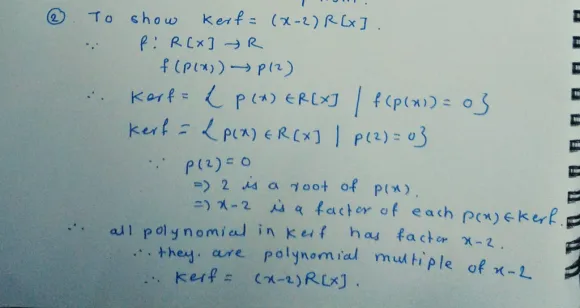 ② To show Kerf = (x-2)R[x].
∵ f: R[x] → R
f(p(x)) → p(2)
∴ Kerf = { p(x) ∈ R[x] | f(p(x)) = 0}
Kerf = { p(x) ∈ R[x] | p(2) = 0}
∵ p(2) = 0
=> 2 is a root of p(x).
=> x-2 is a factor of each p(x) ∈ Kerf.
∴ all polynomial in Kerf has factor x-2.
∴ they are polynomial multiple of x-2
∴ Kerf = (x-2)R[x].